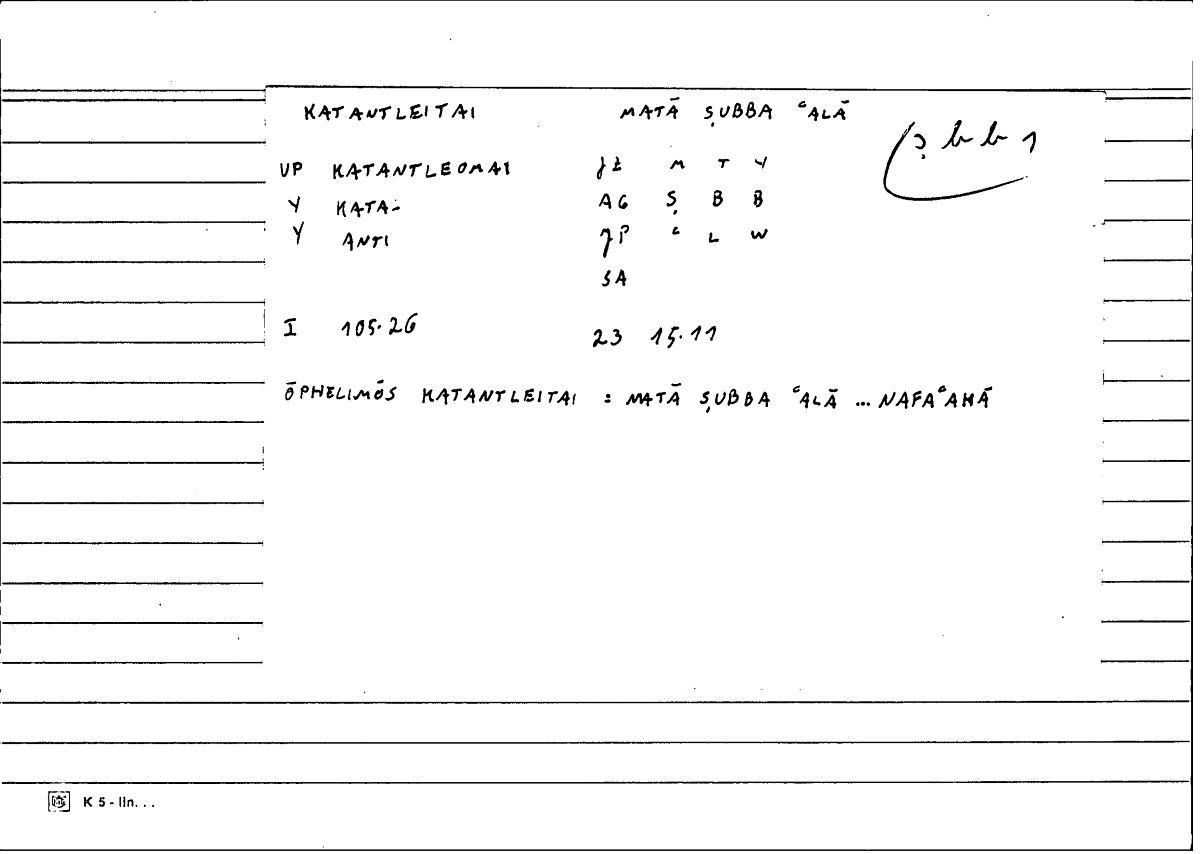 KATANTLEITAI MATĀ ṢUBBA ʿALĀ
ṣ b b 1
UP KATANTLEOMAI JZ M T Y
Y KATA- AG Ṣ B B
Y ANTI JP ʿ L W
SA
I 105.26 23 15.11
ŌPHELIMŌS KATANTLEITAI : MATĀ ṢUBBA ʿALĀ ... NAFAʿAHĀ
K 5 - lin. . .